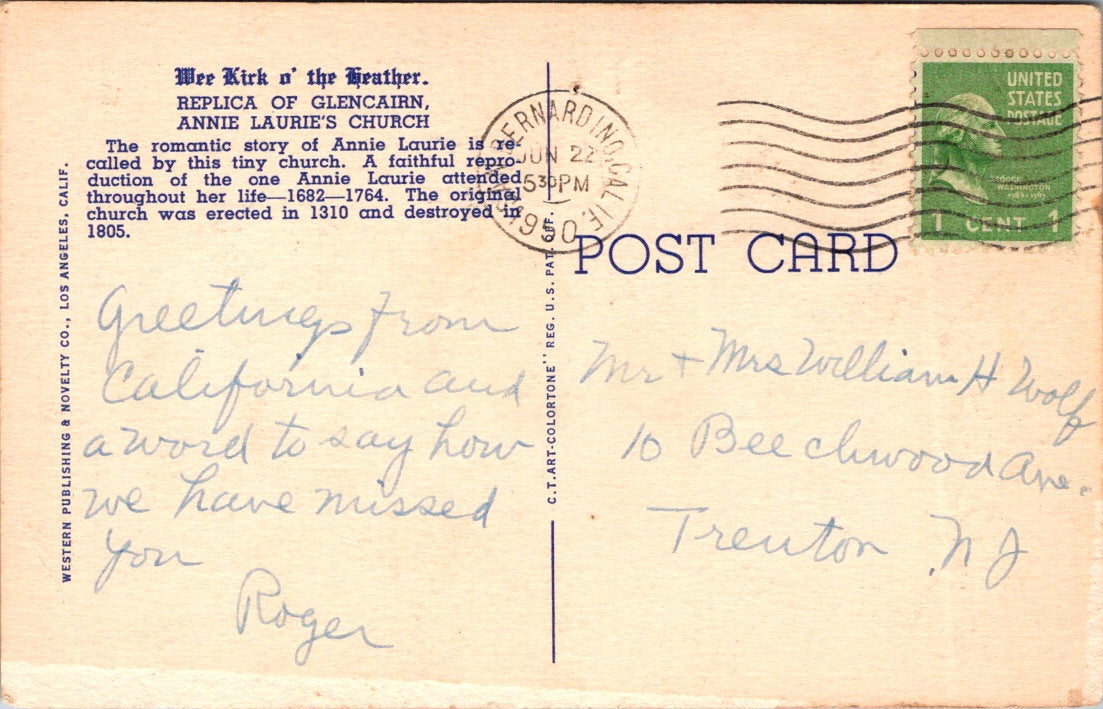 Wee Kirk o' the Heather.
REPLICA OF GLENCAIRN,
ANNIE LAURIE'S CHURCH
The romantic story of Annie Laurie is re-
called by this tiny church. A faithful repro-
duction of the one Annie Laurie attended
throughout her life—1682—1764. The original
church was erected in 1310 and destroyed in
1805.
WESTERN PUBLISHING & NOVELTY CO., LOS ANGELES, CALIF.
Greetings from
California and
a word to say how
we have missed
you
Roger
C.T. ART-COLORTONE" REG. U.S. PAT. OFF.
SAN BERNARDINO, CALIF.
JUN 22
530PM
1950
POST CARD
UNITED
STATES
POSTAGE
GEORGE
WASHINGTON
1 CENT 1
Mr + Mrs William H Wolf
10 Beechwood Ave.
Trenton NJ